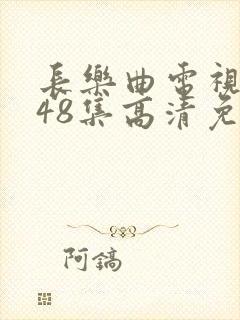 長樂曲電視
48集高清免
阿鎬